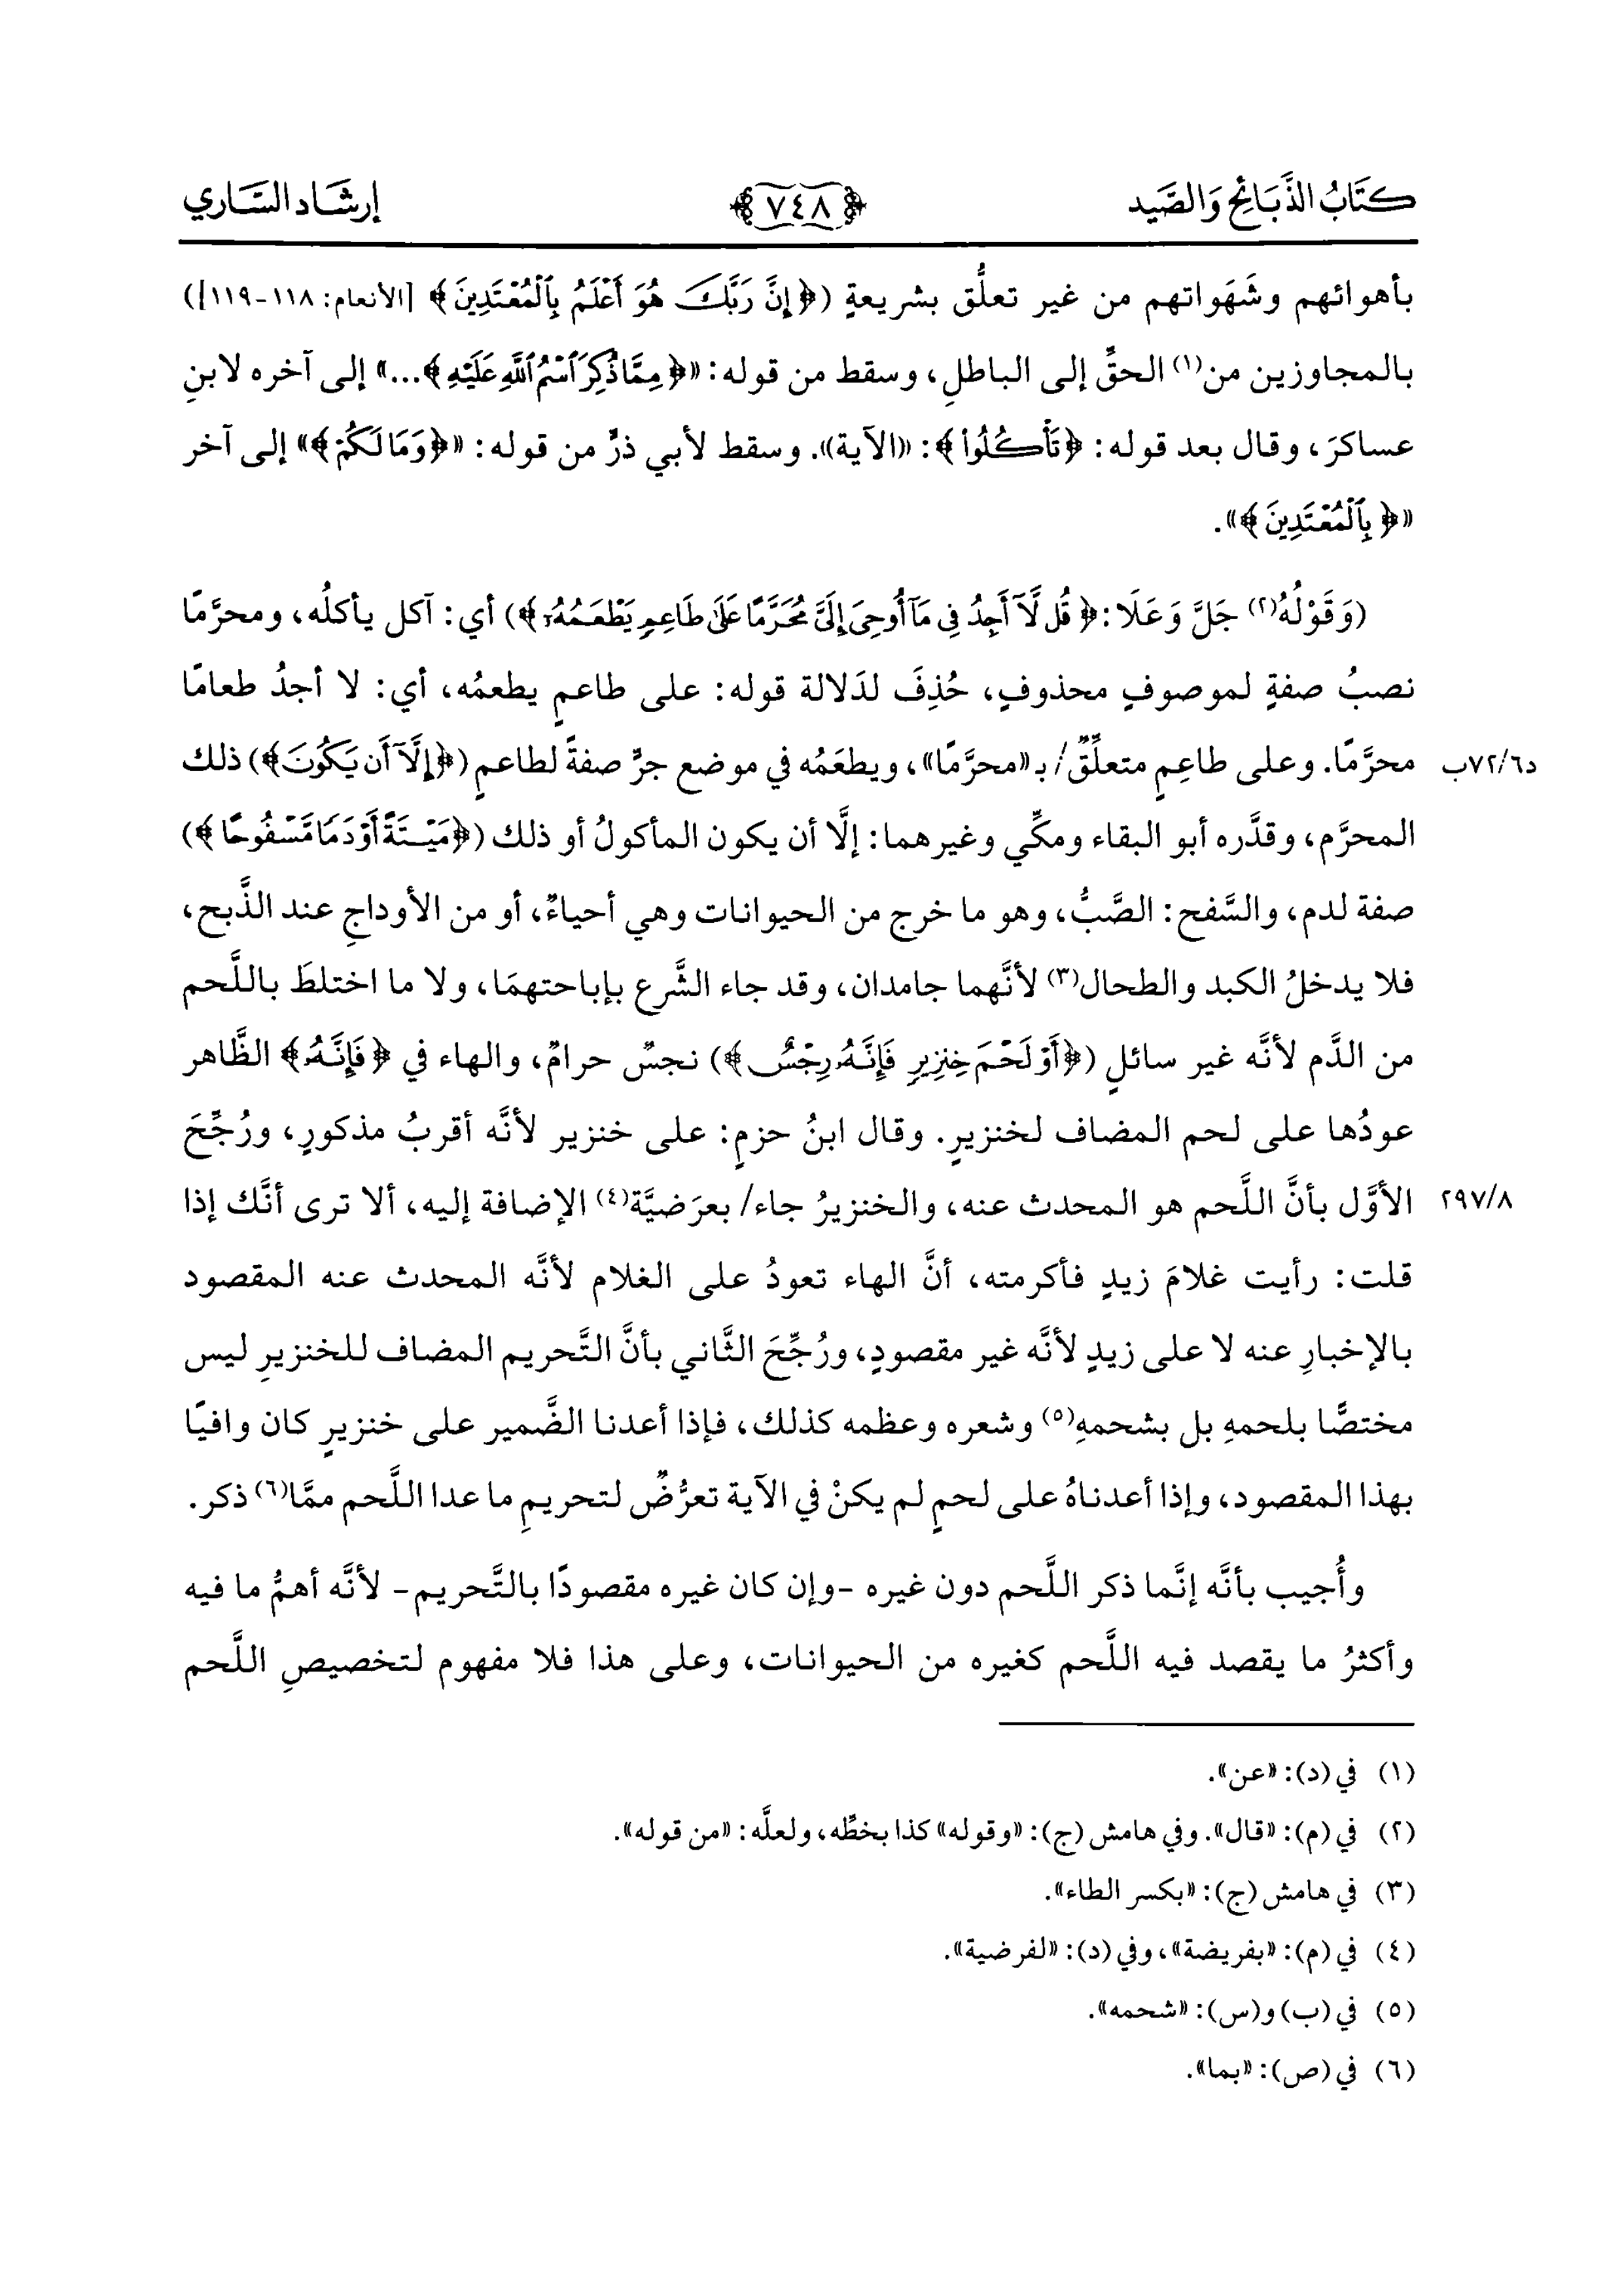 كتاب الذبائح والصيد ٧٤٨ إرشاد الساري
بأهوائهم وشَهَواتهم من غير تعلُّق بشريعةٍ (﴿إِنَّ رَبَّكَ هُوَ أَعْلَمُ بِٱلْمُعْتَدِينَ﴾ [الأنعام: ١١٨-١١٩])
بالمجاوزين من(١) الحقِّ إلى الباطلِ، وسقط من قوله: «﴿مِمَّا ذُكِرَ ٱسْمُ ٱللَّهِ عَلَيْهِ﴾...» إلى آخره لابنِ
عساكرَ، وقال بعد قوله: ﴿تَأْكُلُوا۟﴾: «الآية». وسقط لأبي ذرٍّ من قوله: «﴿وَمَا لَكُمْ﴾» إلى آخر
«﴿بِٱلْمُعْتَدِينَ﴾».
(وَقَوْلُهُ(٢) جَلَّ وَعَلَا: ﴿قُل لَّآ أَجِدُ فِى مَآ أُوحِىَ إِلَىَّ مُحَرَّمًا عَلَىٰ طَاعِمٍ يَطْعَمُهُۥٓ﴾) أي: آكل يأكلُه، ومحرَّمًا
نصبُ صفةٍ لموصوفٍ محذوفٍ، حُذِفَ لدَلالة قوله: على طاعمٍ يطعمُه، أي: لا أجدُ طعامًا
محرَّمًا. وعلى طاعِمٍ متعلِّقٌ/ بـ«محرَّمًا»، ويطعَمُه في موضع جرٍّ صفةً لطاعمٍ (﴿إِلَّآ أَن يَكُونَ﴾) ذلك د٧٢/٦ب
المحرَّم، وقدَّره أبو البقاء ومكِّي وغيرهما: إلَّا أن يكون المأكولُ أو ذلك (﴿مَيْتَةً أَوْ دَمًا مَّسْفُوحًا﴾)
صفة لدم، والسَّفح: الصَّبُّ، وهو ما خرج من الحيوانات وهي أحياءٌ، أو من الأوداجِ عند الذَّبح،
فلا يدخلُ الكبد والطحال(٣) لأنَّهما جامدان، وقد جاء الشَّرع بإباحتهمَا، ولا ما اختلطَ باللَّحم
من الدَّم لأنَّه غير سائلٍ (﴿أَوْ لَحْمَ خِنزِيرٍ فَإِنَّهُۥ رِجْسٌ﴾) نجسٌ حرامٌ، والهاء في ﴿فَإِنَّهُۥ﴾ الظَّاهر
عودُها على لحم المضاف لخنزيرٍ. وقال ابنُ حزمٍ: على خنزير لأنَّه أقربُ مذكورٍ، ورُجِّحَ
الأوَّل بأنَّ اللَّحم هو المحدث عنه، والخنزيرُ جاء/ بعرَضيَّة(٤) الإضافة إليه، ألا ترى أنَّك إذا ٢٩٧/٨
قلت: رأيت غلامَ زيدٍ فأكرمته، أنَّ الهاء تعودُ على الغلام لأنَّه المحدث عنه المقصود
بالإخبارِ عنه لا على زيدٍ لأنَّه غير مقصودٍ، ورُجِّحَ الثَّاني بأنَّ التَّحريم المضاف للخنزيرِ ليس
مختصًّا بلحمهِ بل بشحمهِ(٥) وشعره وعظمه كذلك، فإذا أعدنا الضَّمير على خنزيرٍ كان وافيًا
بهذا المقصود، وإذا أعدناهُ على لحمٍ لم يكنْ في الآية تعرُّضٌ لتحريمِ ما عدا اللَّحم ممَّا(٦) ذكر.
وأُجيب بأنَّه إنَّما ذكر اللَّحم دون غيره -وإن كان غيره مقصودًا بالتَّحريم- لأنَّه أهمُّ ما فيه
وأكثرُ ما يقصد فيه اللَّحم كغيره من الحيوانات، وعلى هذا فلا مفهوم لتخصيصِ اللَّحم
(١) في (د): «عن».
(٢) في (م): «قال». وفي هامش (ج): «وقوله» كذا بخطِّه، ولعلَّه: «من قوله».
(٣) في هامش (ج): «بكسر الطاء».
(٤) في (م): «بفريضة»، وفي (د): «لفرضية».
(٥) في (ب) و(س): «شحمه».
(٦) في (ص): «بما».